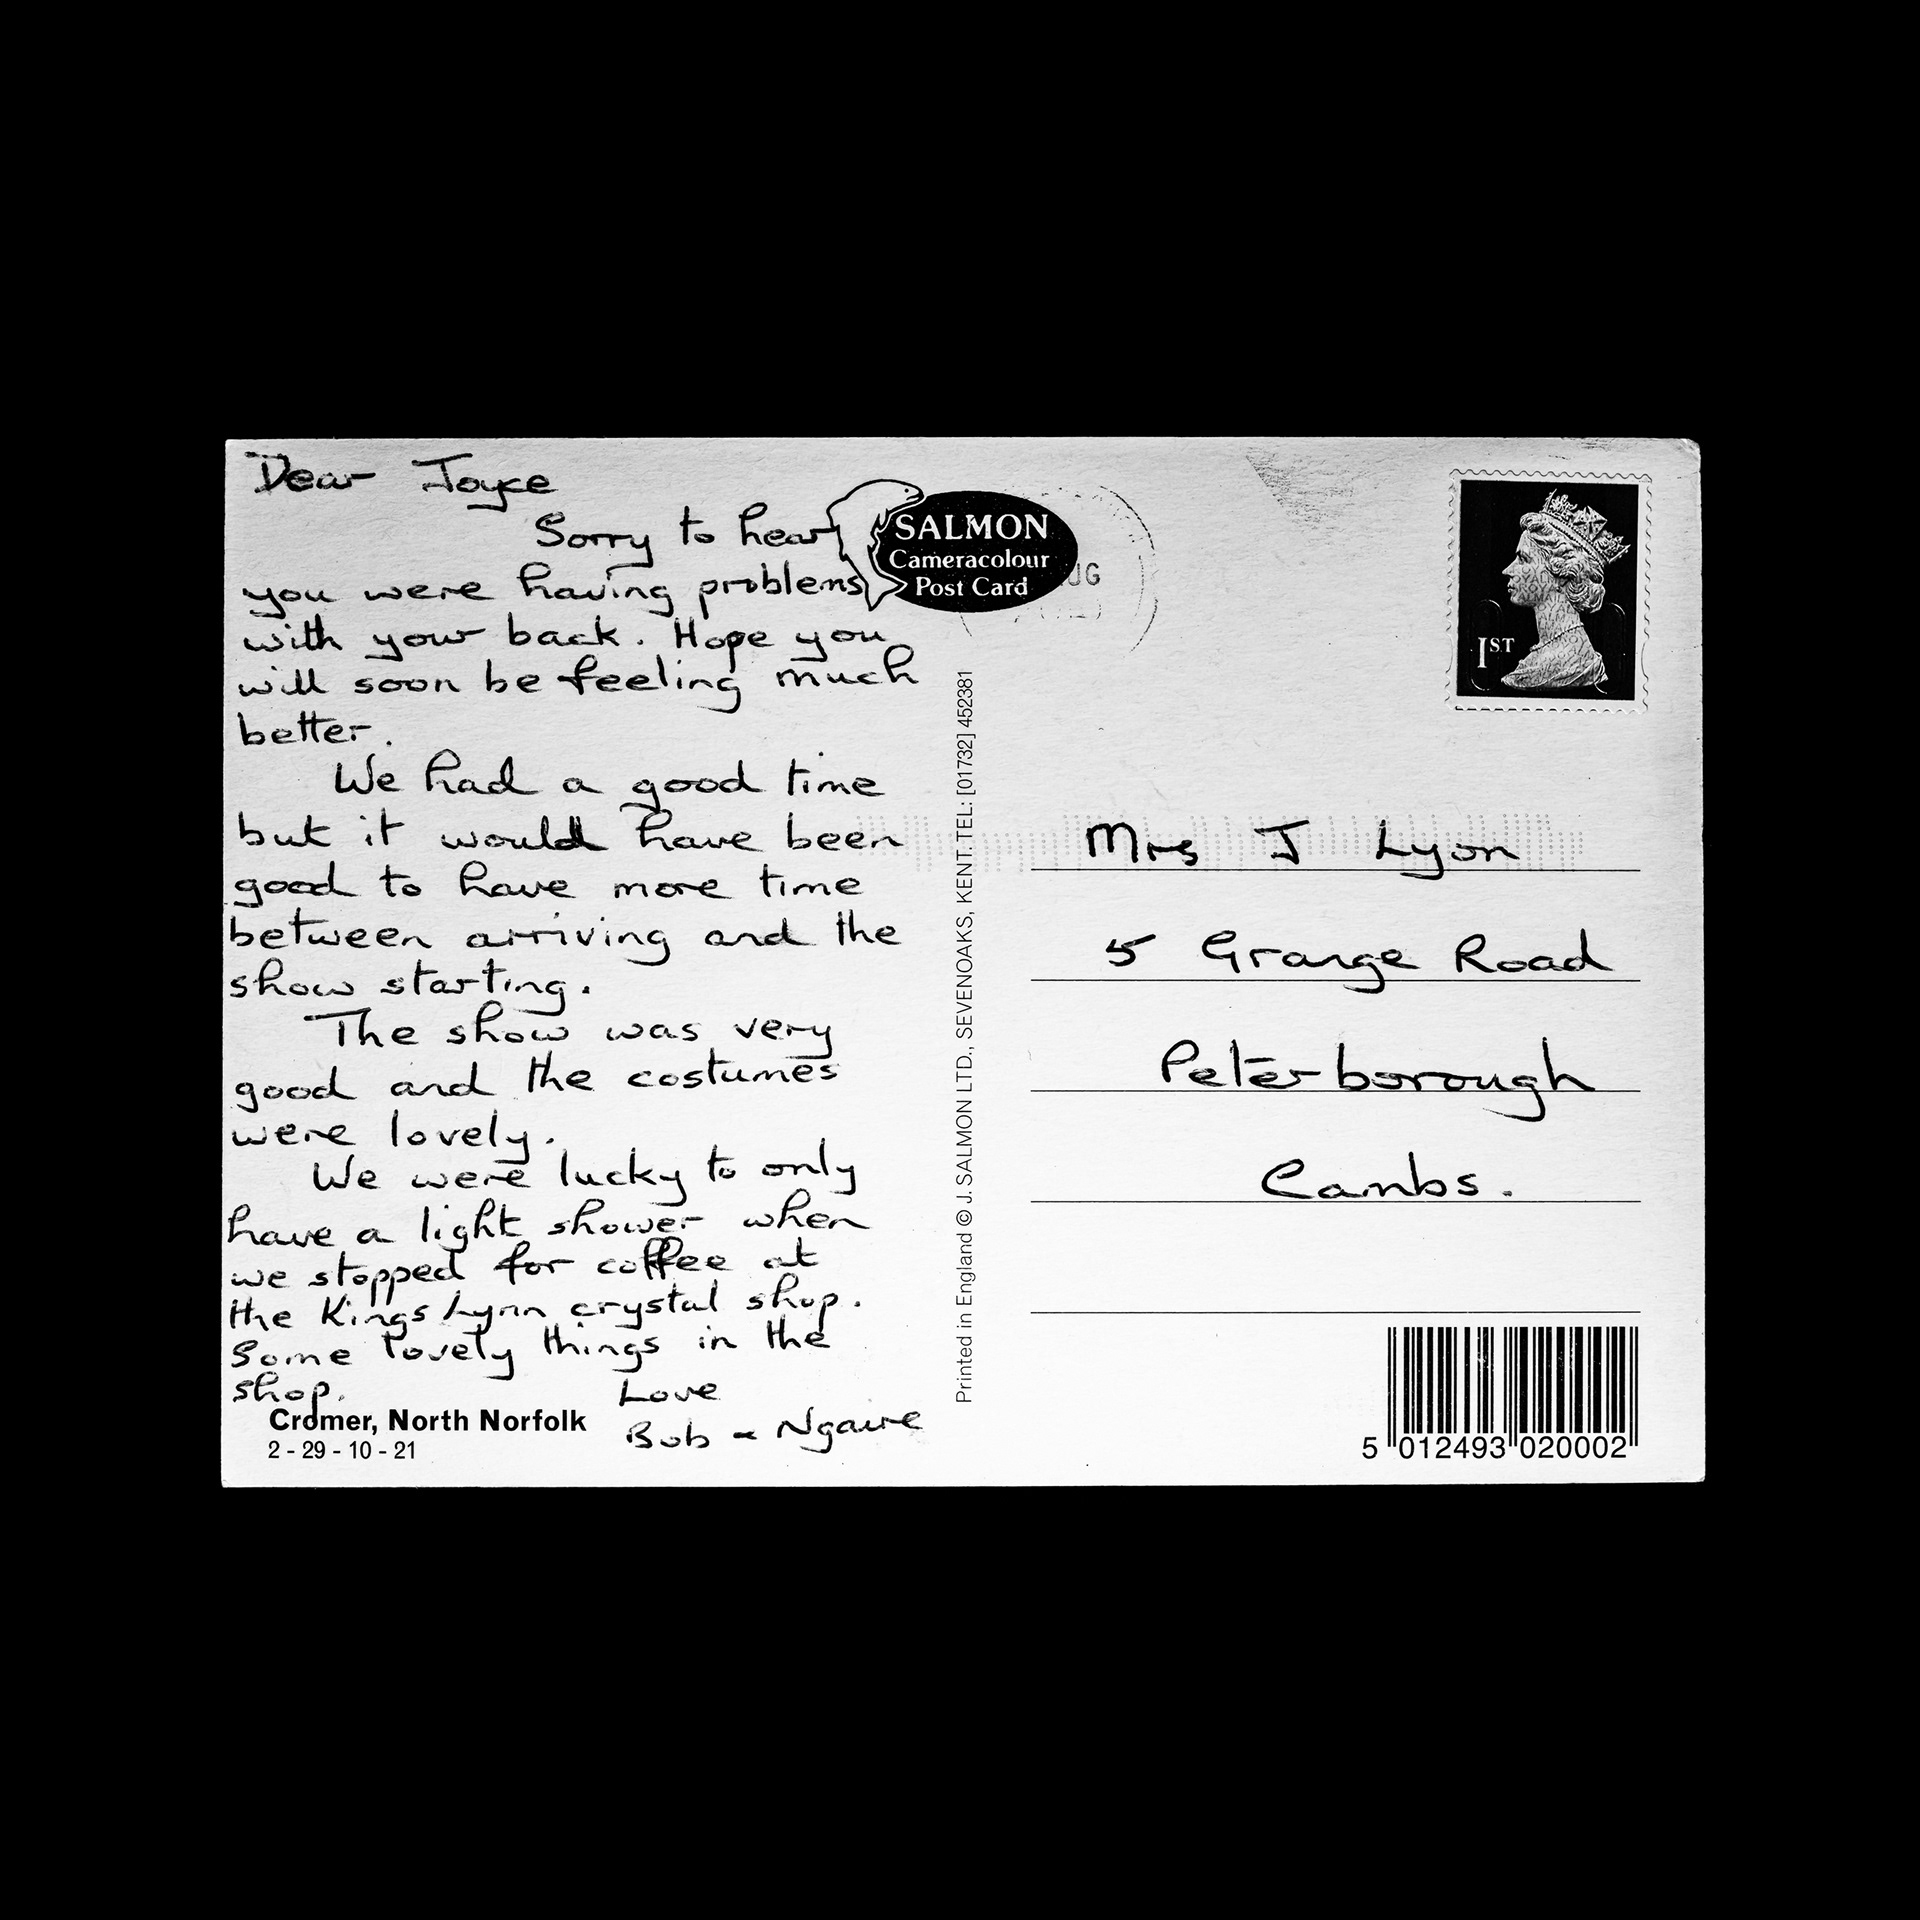 Dear Joyce
Sorry to hear
you were having problems
with your back. Hope you
will soon be feeling much
better.
We had a good time
but it would have been
good to have more time
between arriving and the
show starting.
The show was very
good and the costumes
were lovely.
We were lucky to only
have a light shower when
we stopped for coffee at
the Kings Lynn crystal shop.
Some lovely things in the
shop.
Love
Bob & Ngaire
Cromer, North Norfolk
2 - 29 - 10 - 21
SALMON
Cameracolour
Post Card
Printed in England © J. SALMON LTD., SEVENOAKS, KENT. TEL: [01732] 452381
1ST
Mrs J Lyon
5 Grange Road
Peterborough
Cambs.
5 012493 020002